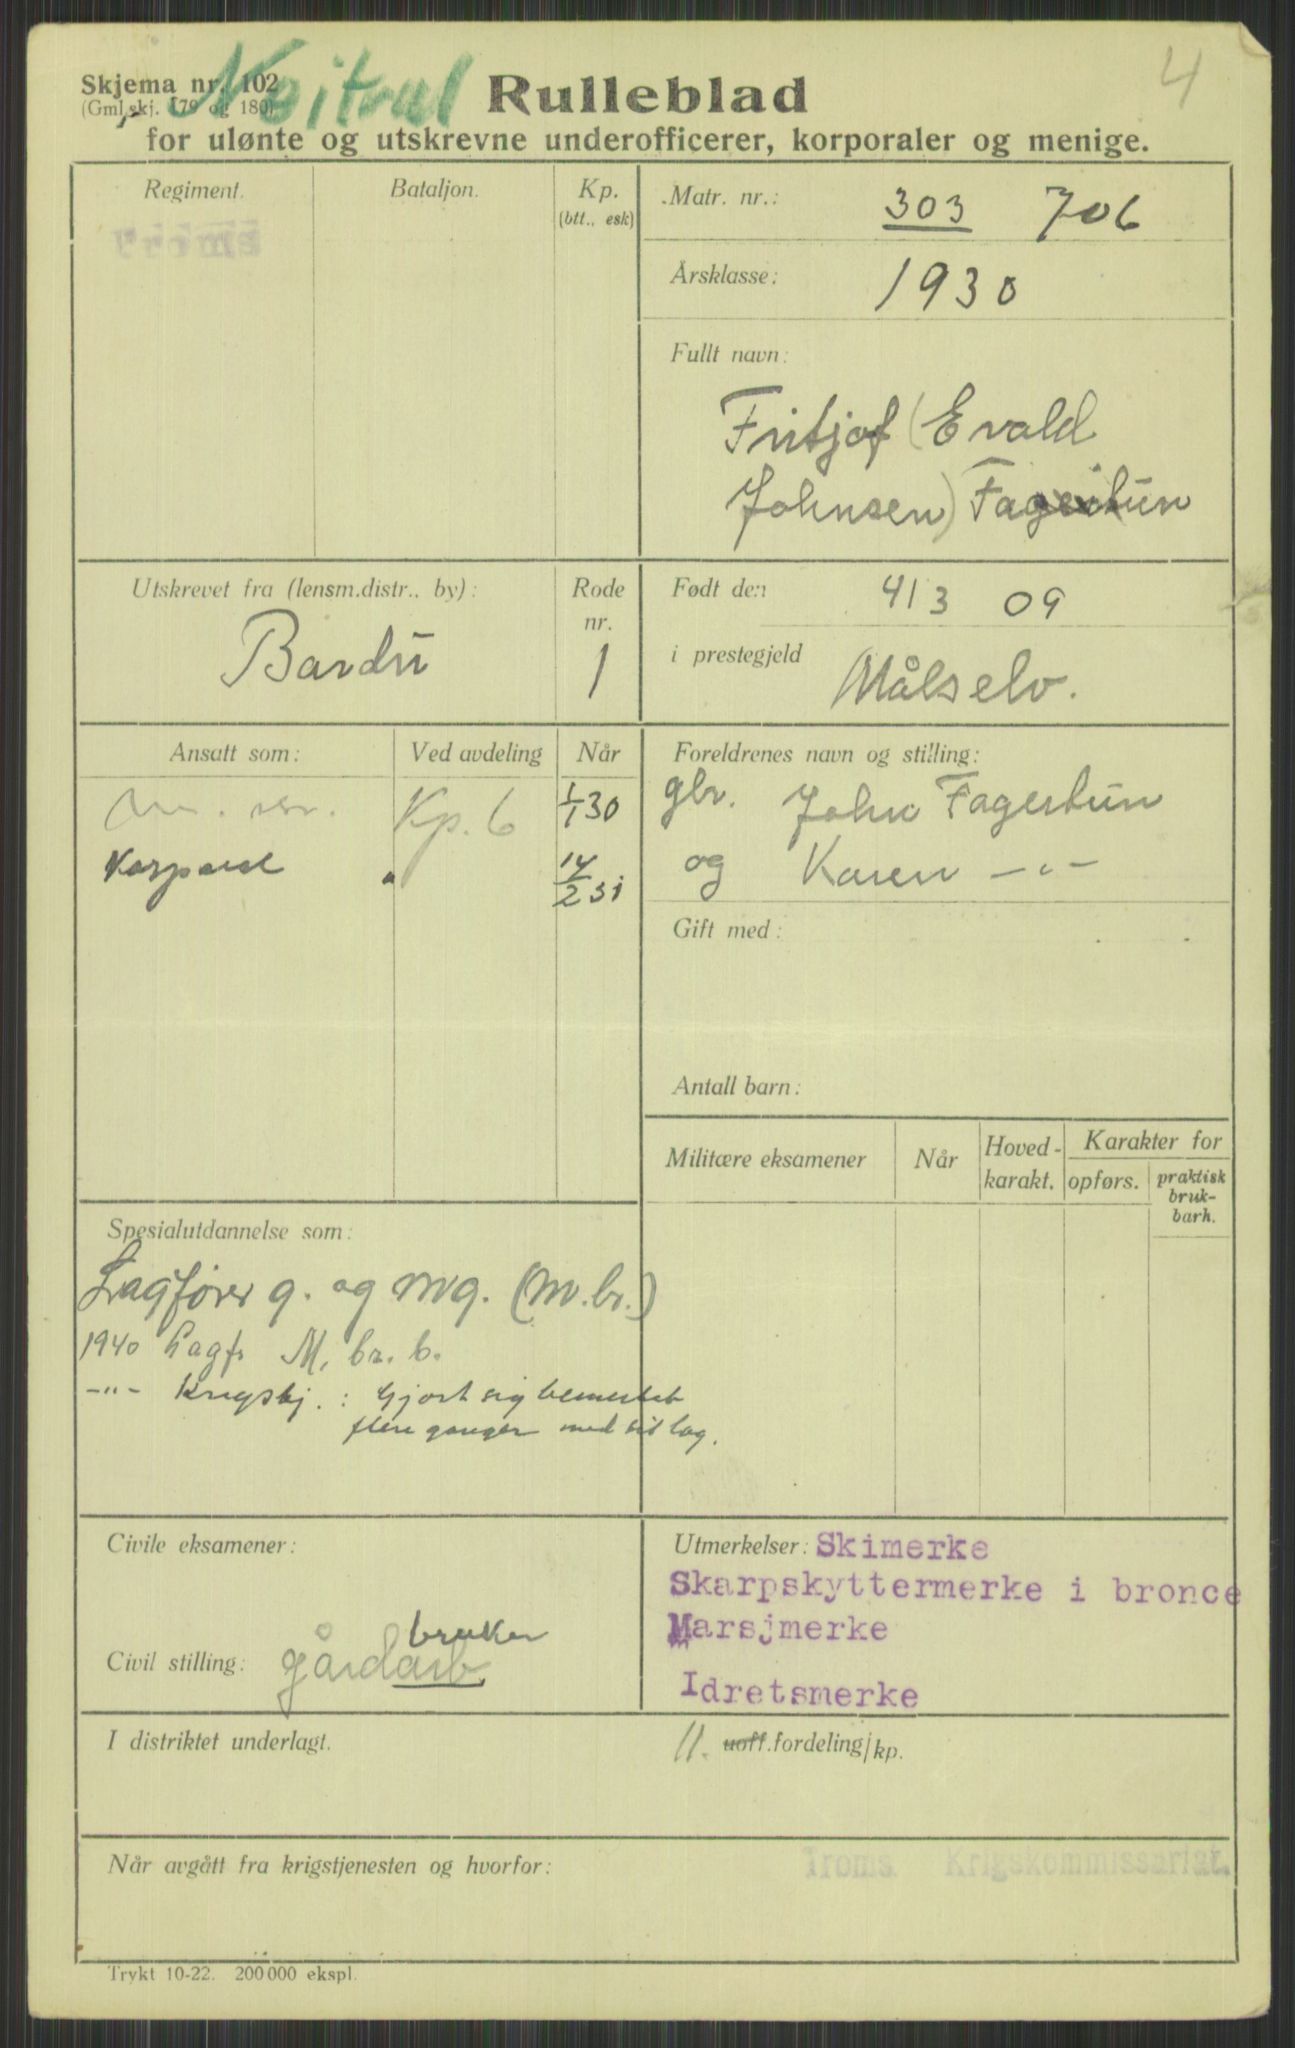 Skjema nr. 102
(Gml. skj. 179 og 180)
Nøitral
4
Rulleblad
for ulønte og utskrevne underofficerer, korporaler og menige.
Regiment.
Bataljon.
Kp.
(btt., esk)
Matr. nr.: 303 706
Årsklasse: 1930
Fullt navn:
Fritjof (Evald
Johnsen) Fagertun
Utskrevet fra (lensm.distr., by):
Bardu
Rode
nr.
1
Født den 4/3 09
i prestegjeld Målselv.
Ansatt som:
Ved avdeling
Når
Kp. 6
1/1 30
Korporal
"
14/2 31
Foreldrenes navn og stilling:
gbr. John Fagertun
og Karen -"-
Gift med:
Antall barn:
Militære eksamener
Når
Hoved-
karakt.
Karakter for
opførs.
praktisk
bruk-
barh.
Spesialutdannelse som:
Lagfører g. og mg. (M.br.)
1940 Lagf. M. br. b.
-"- Krigstj. : Gjort sig bemerket
flere ganger med sit lag.
Civile eksamener:
bruker
Civil stilling: gårdarb.
Utmerkelser: Skimerke
Skarpskyttermerke i bronce
Marsjmerke
Idretsmerke
I distriktet underlagt.
11. uoff.fordeling/kp.
Når avgått fra krigstjenesten og hvorfor:
Troms Krigskommissariat.
Trykt 10-22. 200 000 ekspl.